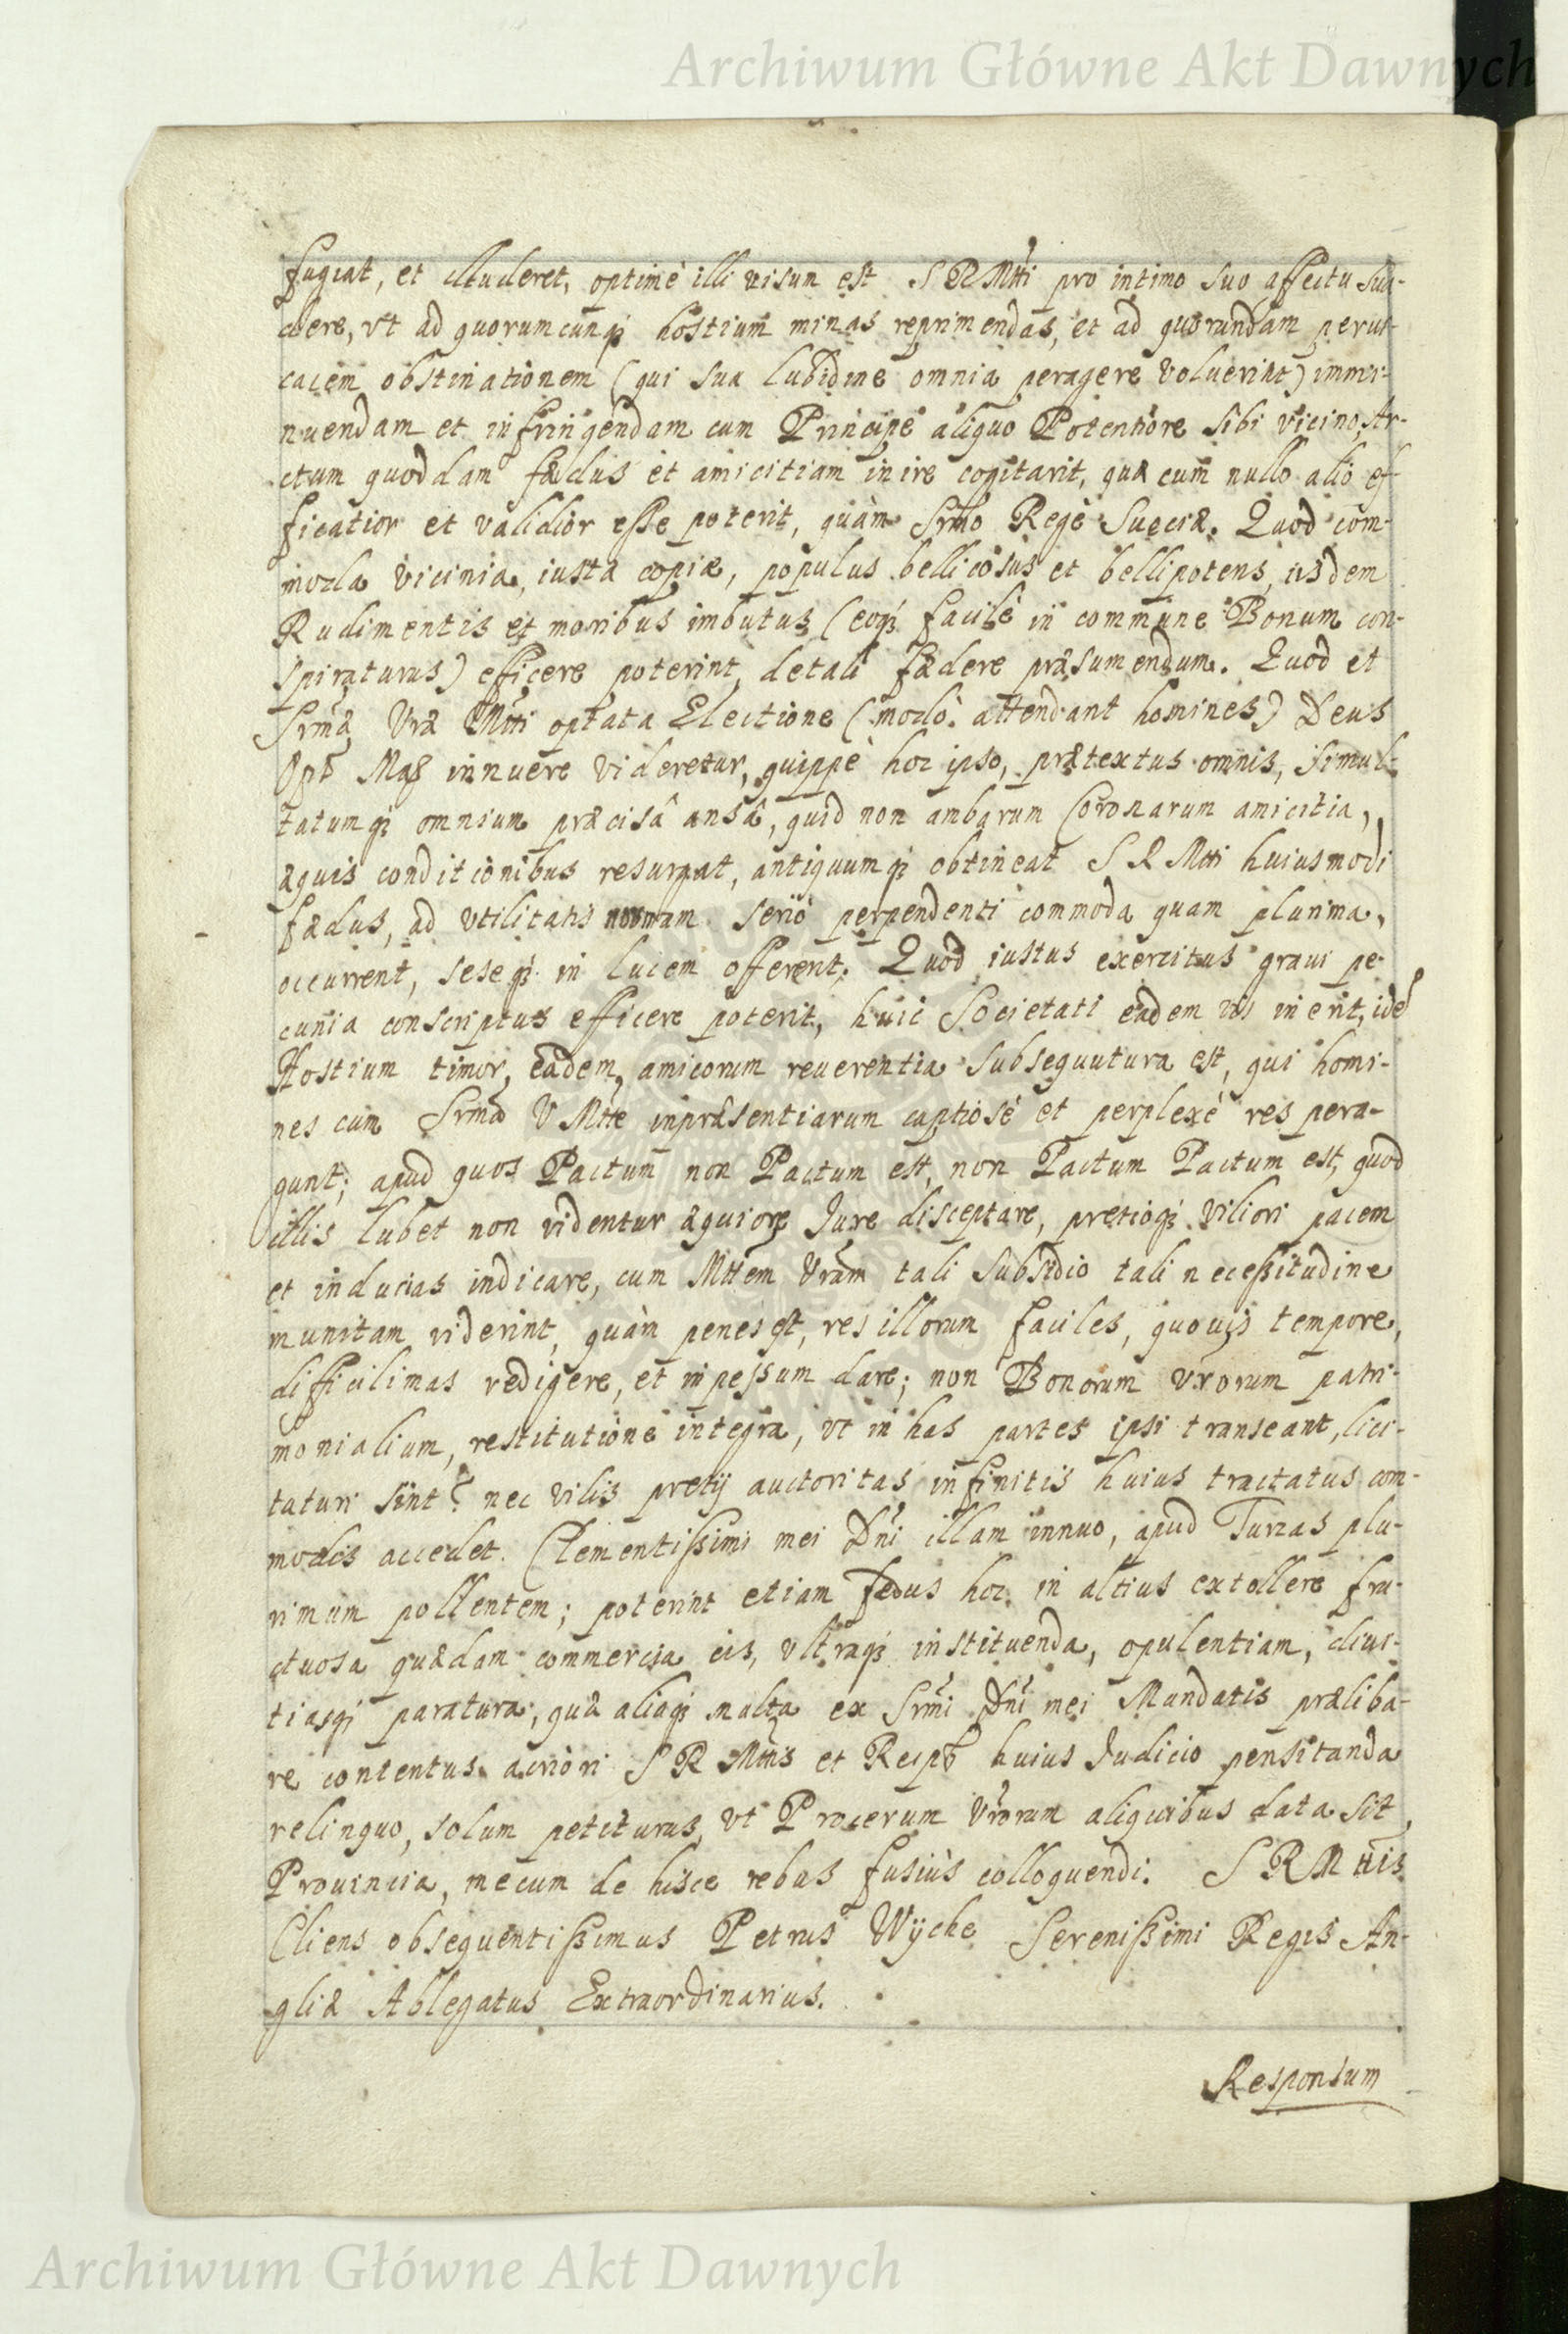 Archiwum Główne Akt Dawnych
fugiat, et illuderet, optimè illi visum est S R Mtti pro intimo suo affectu sua-
dere, vt ad quorumcunq; hostium minas reprimendas, et ad quorundam peruı-
cacem obstinationem (qui sua lubidine omnia peragere voluerint) immi-
nuendam et infringendam cum Principe aliquo Potentiore sibi vicino, Ar-
ctum quoddam fædus et amicitiam inire cogitarit, quæ cum nullo alio ef-
ficatior et validior esse poterit, quàm Srmo Rege Sueciæ. Quod com-
moda vicinia, iusta copiæ, populus bellicosus et bellipotens, iisdem
Rudimentis et moribus imbutus (eoq; facilè in commune Bonum con-
spiraturus) efficere poterint, de tali fædere præsumendum. Quod et
Srmæ Vræ Mtti optata Electione (modò attendant homines) Deus
Opt Max innuere videretur, quippè hoc ipso, prætextus omnis, simul-
tatumq; omnium præcisâ ansâ, quid non ambarum Coronarum amicitia,
æquis conditionibus resurgat, antiquumq; obtineat S R Mtti huiusmodi
fædus, ad vtilitatis normam seriò perpendenti commoda quam plurima,
occurrent, seseq; in lucem offerent. Quod iustus exercitus graui pe-
cunia conscriptus efficere poterit, huic Societati eadem vis inerit, idē
Hostium timor, eadem, amicorum reuerentia subsequutura est, qui homi-
nes cum Srma V Mtte inpræsentiarum captiosè et perplexè res pera-
gunt; apud quos Pactum non Pactum est, non Pactum Pactum est, quod
illis lubet non videntur æquiore Jure disceptare, pretioq; viliori pacem
et inducias indicare, cum Mttem Vram tali subsidio tali necessitudine
munitam viderint, quàm penes est, res illorum faciles, quouis tempore,
difficilimas redigere, et in pessum dare; non Bonorum vrorum patri-
monialium, restitutione integra, vt in has partes ipsi transeant, lici-
taturi sint? nec vilis pretij auctoritas infinitis huius tractatus com-
modis accedet. Clementissimi mei Dni illam innuo, apud Turcas plu-
rimum pollentem; poterint etiam fedus hoc in altius extollere fru-
ctuosa quædam commercia cis, vltraq; instituenda, opulentiam, diui-
tiasq; paratura; quæ aliaq; multa ex Srmi Dni mei Mandatis præliba-
re contentus acriori S R Mttis et Reipb huius Judicio pensitanda
relinquo, solum petiturus, vt Procerum Vrorum aliquibus data sit,
Prouincia, mecum de hisce rebus fusiùs colloquendi. S R Mttis
Cliens obsequentissimus Petrus Wÿche Serenissimi Regis An-
gliæ Ablegatus Extraordinarius.
Responsum
Archiwum Główne Akt Dawnych